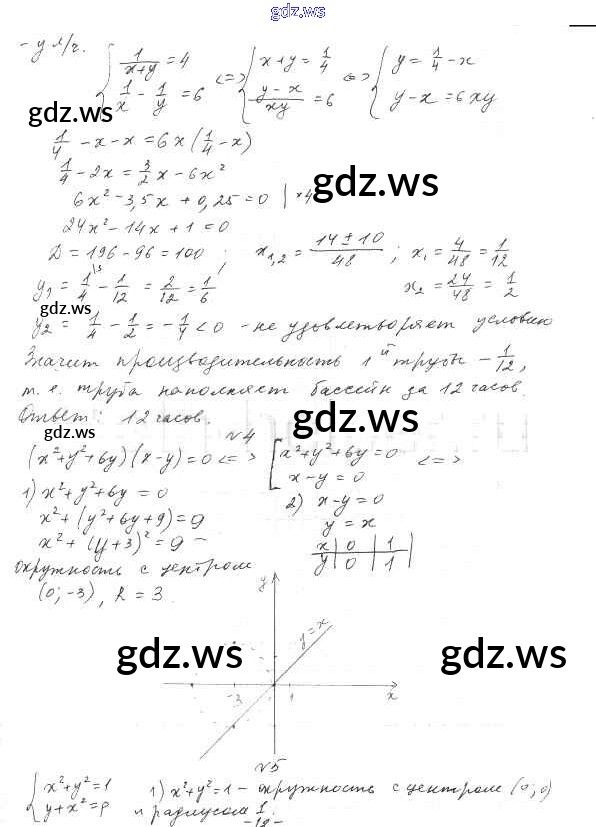 gdz.ws
- y л/ч. { 1/(x+y) = 4 <=> { x+y = 1/4 <=> { y = 1/4 - x
1/x - 1/y = 6 (y-x)/xy = 6 y-x = 6xy
1/4 - x - x = 6x(1/4 - x)
1/4 - 2x = 3/2 x - 6x²
gdz.ws
gdz.ws
6x² - 3,5x + 0,25 = 0 | ×4
24x² - 14x + 1 = 0
D = 196 - 96 = 100 ; x1,2 = (14 ± 10)/48 ; x1 = 4/48 = 1/12
y1 = 1/4 - 1/12 = 2/12 = 1/6 x2 = 24/48 = 1/2
gdz.ws
y2 = 1/4 - 1/2 = -1/4 < 0 - не удовлетворяет условию
Значит производительность 1й трубы - 1/12,
т.е. труба наполняет бассейн за 12 часов.
Ответ: 12 часов.
gdz.ws
gdz.ws
№4
(x²+y²+6y)(x-y)=0 <=> [ x²+y²+6y=0 <=>
x-y=0
1) x²+y²+6y=0 2) x-y=0
x²+(y²+6y+9)=9 y=x
x²+(y+3)²=9 - x | 0 | 1 |
gdz.ws
y | 0 | 1 |
окружность с центром
(0;-3), R=3.
y
y=x
gdz.ws
gdz.ws
-3 1 x
№5
{ x²+y²=1 1) x²+y²=1 - окружность с центром (0;0)
y+x²=p и радиусом 1.
-18-